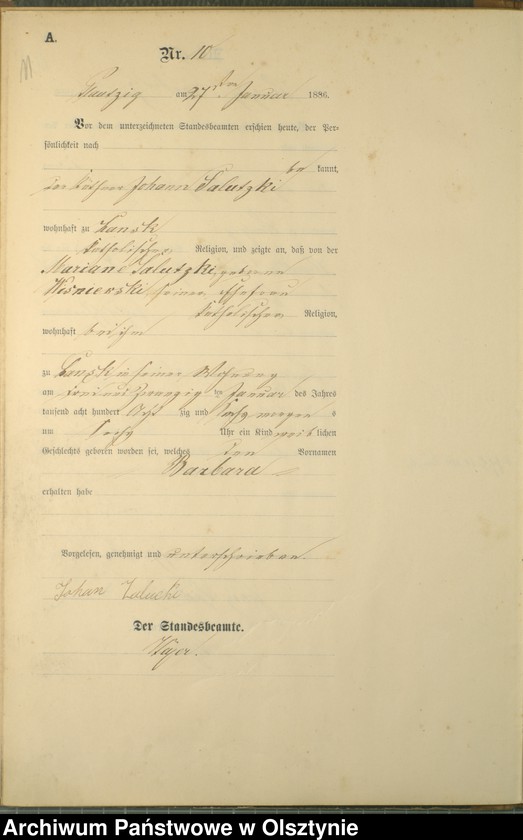 A.
Nr. 10
am 27ten Januar 1886.
Vor dem unterzeichneten Standesbeamten erschien heute, der Per-
sönlichkeit nach
be kannt,
der Johann Salutzki
wohnhaft zu Lansk
katholischer Religion, und zeigte an, daß von der
Mariane Salutzki geborenen
Wisniewski seiner Ehefrau
katholischer Religion,
wohnhaft bei ihm
zu Lansk in seiner Wohnung
am zwanzig ten Januar des Jahres
tausend acht hundert Acht zig und sechs morgens
um sechs Uhr ein Kind weib lichen
Geschlechts geboren worden sei, welches den Vornamen
Barbara
erhalten habe
Vorgelesen, genehmigt und unterschrieben.
Johan
Der Standesbeamte.
Archiwum Państwowe w Olsztynie